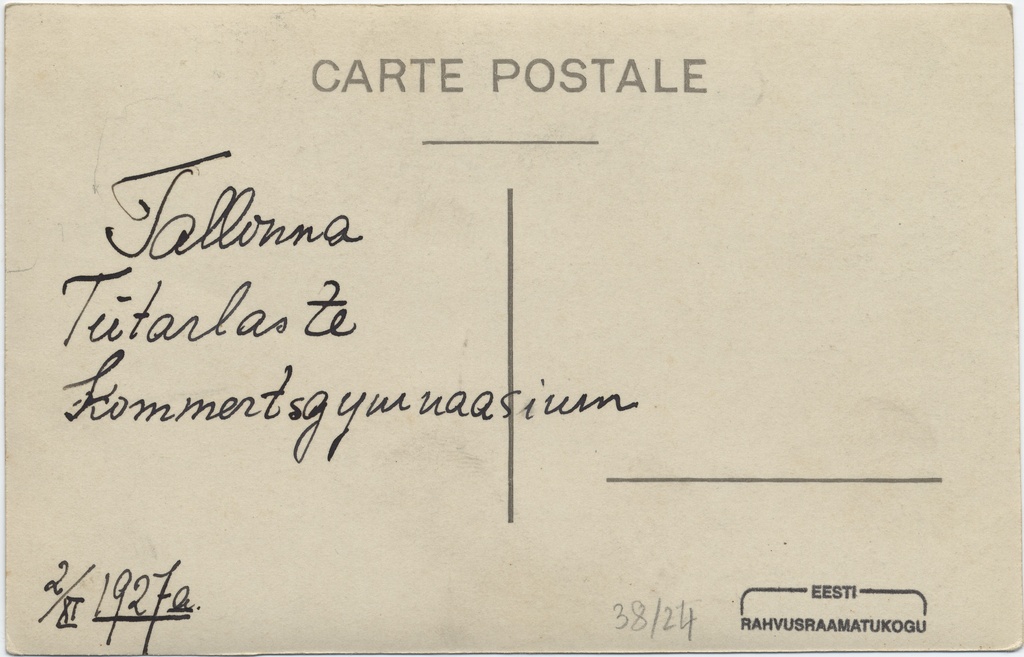 CARTE POSTALE
Tallonna
Tütarlaste
Kommertsgymnaasium
2/XI 1927 a.
38/24
EESTI
RAHVUSRAAMATUKOGU